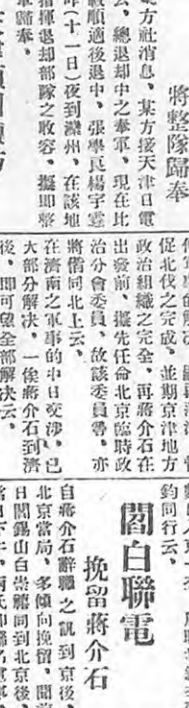 將整隊歸奉
方社消息、某方接天津日電
云、總退却中之奉軍、現在比
較順適後退中、張學良楊宇霆
昨(十一日)夜到灤州、在該地
指揮退却部隊之收容、擬即整
促北伐之完成、並期京津地方
政治組織之完全、再蔣介石在
出發前、擬先任命北京臨時政
治分會委員、故該委員等、亦
將偕同北上云、
在濟南之軍事的中日交涉、已
大部分解決、一俟蔣介石到濟
後、即可望全部解決云、
鈞同行云、
閻白聯電
挽留蔣介石
自蔣介石辭職之訊到京後、
北京當局、多傾向挽留、聞前
日閻錫山白崇禧同到北京後、